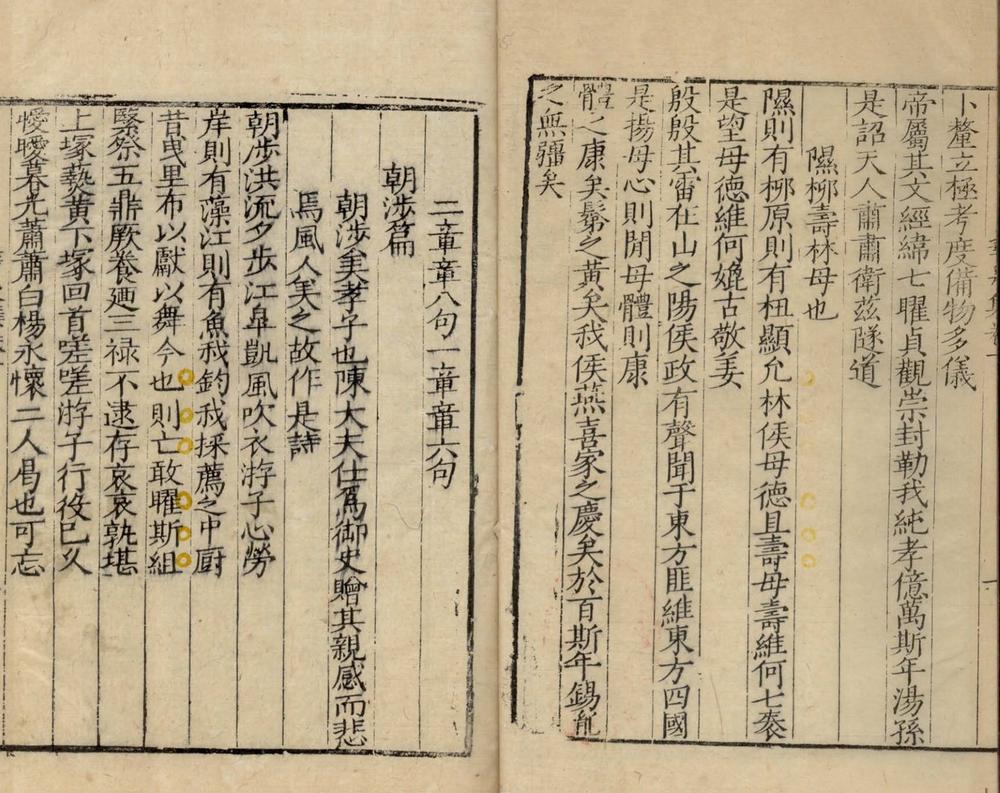 卜釐立極考度備物多儀
帝屬其文經緯七曜貞觀崇封勒我純孝億萬斯年湯孫
是詔天人肅肅衛茲隧道
隰柳壽林母也
隰則有柳原則有杻顯允林侯母德且壽母壽維何七袠
是望母德維何媲古敬姜
殷殷其雷在山之陽侯政有聲聞于東方匪維東方四國
是揚母心則閒母體則康
體之康矣鬒之黃矣我侯燕喜家之慶矣於百斯年錫胤
之無疆矣
二章章八句一章章六句
朝涉篇
朝涉美孝子也陳大夫仕爲御史贈其親感而悲
焉風人美之故作是詩
朝涉洪流夕步江皐凱風吹衣游子心勞
岸則有藻江則有魚我釣我採薦之中厨
昔曳里布以獻以舞今也則亡敢曜斯組
緊祭五鼎厥養廼三禄不逮存哀哀孰堪
上塚蓺黃下塚回首嗟嗟游子行役已久
懓曖暮光蕭蕭白楊永懷二人曷也可忘